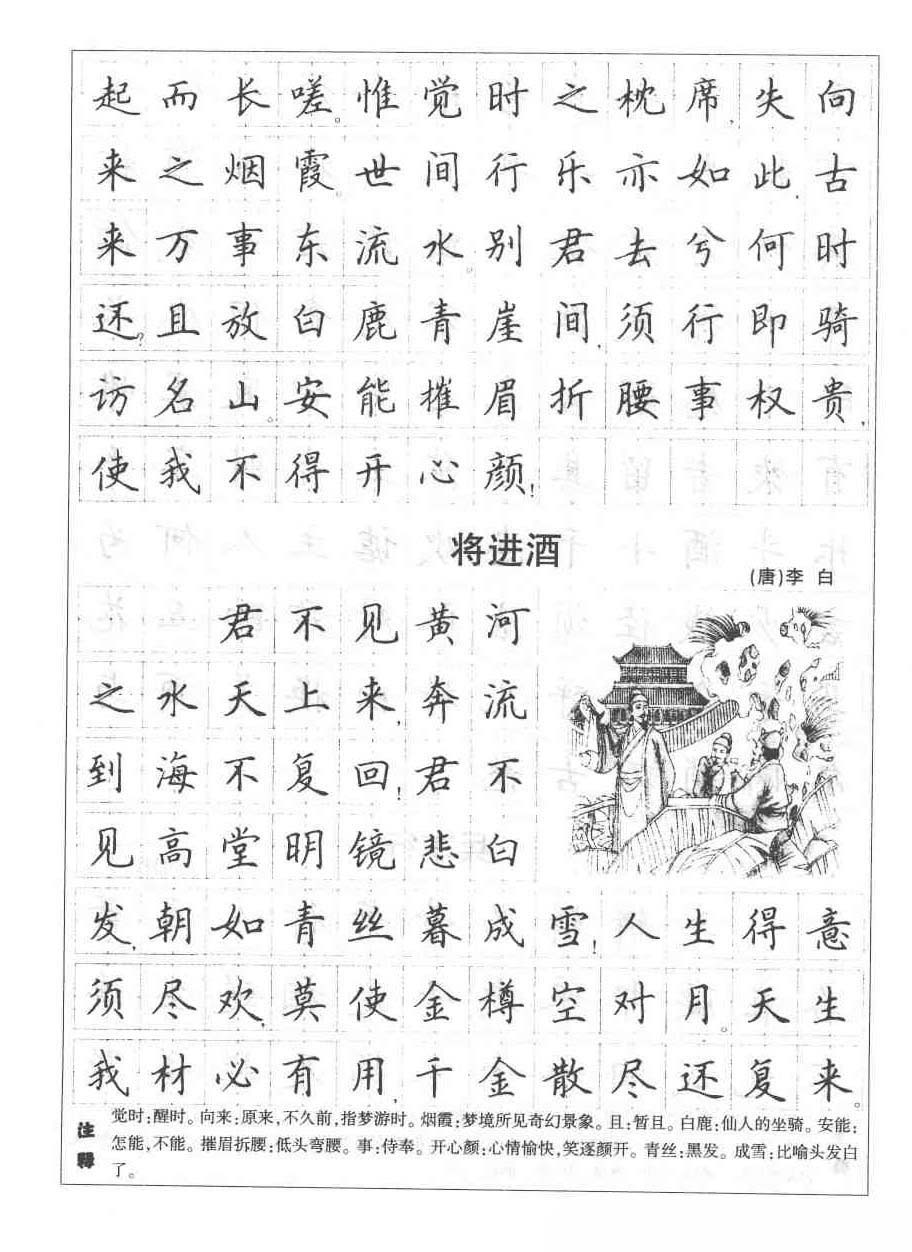 起而长嗟。惟觉时之枕席,失向
来之烟霞。世间行乐亦如此,古
来万事东流水。别君去兮何时
还?且放白鹿青崖间,须行即骑
访名山。安能摧眉折腰事权贵,
使我不得开心颜!
将进酒
(唐)李 白
君不见黄河
之水天上来,奔流
到海不复回!君不
见高堂明镜悲白
发,朝如青丝暮成雪!人生得意
须尽欢,莫使金樽空对月。天生
我材必有用,千金散尽还复来。
注释
觉时:醒时。向来:原来,不久前,指梦游时。烟霞:梦境所见奇幻景象。且:暂且。白鹿:仙人的坐骑。安能:
怎能,不能。摧眉拆腰:低头弯腰。事:侍奉。开心颜:心情愉快,笑逐颜开。青丝:黑发。成雪:比喻头发白
了。